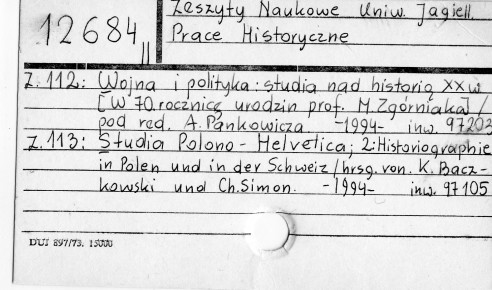 Zeszyty Naukowe Uniw. Jagiell.
12684 || Prace Historyczne
Z. 112: Wojna i polityka: studia nad historią XX w
[W 70. rocznicę urodzin prof. M. Zgórniaka] /
pod red. A. Pankowicza. -1994- inw. 97202
Z. 113: Studia Polono-Helvetica; 2: Historiographie
in Polen und in der Schweiz / hrsg. von. K. Bacz-
kowski und Ch. Simon. -1994- inw. 97105
DUJ 897/73. 15000